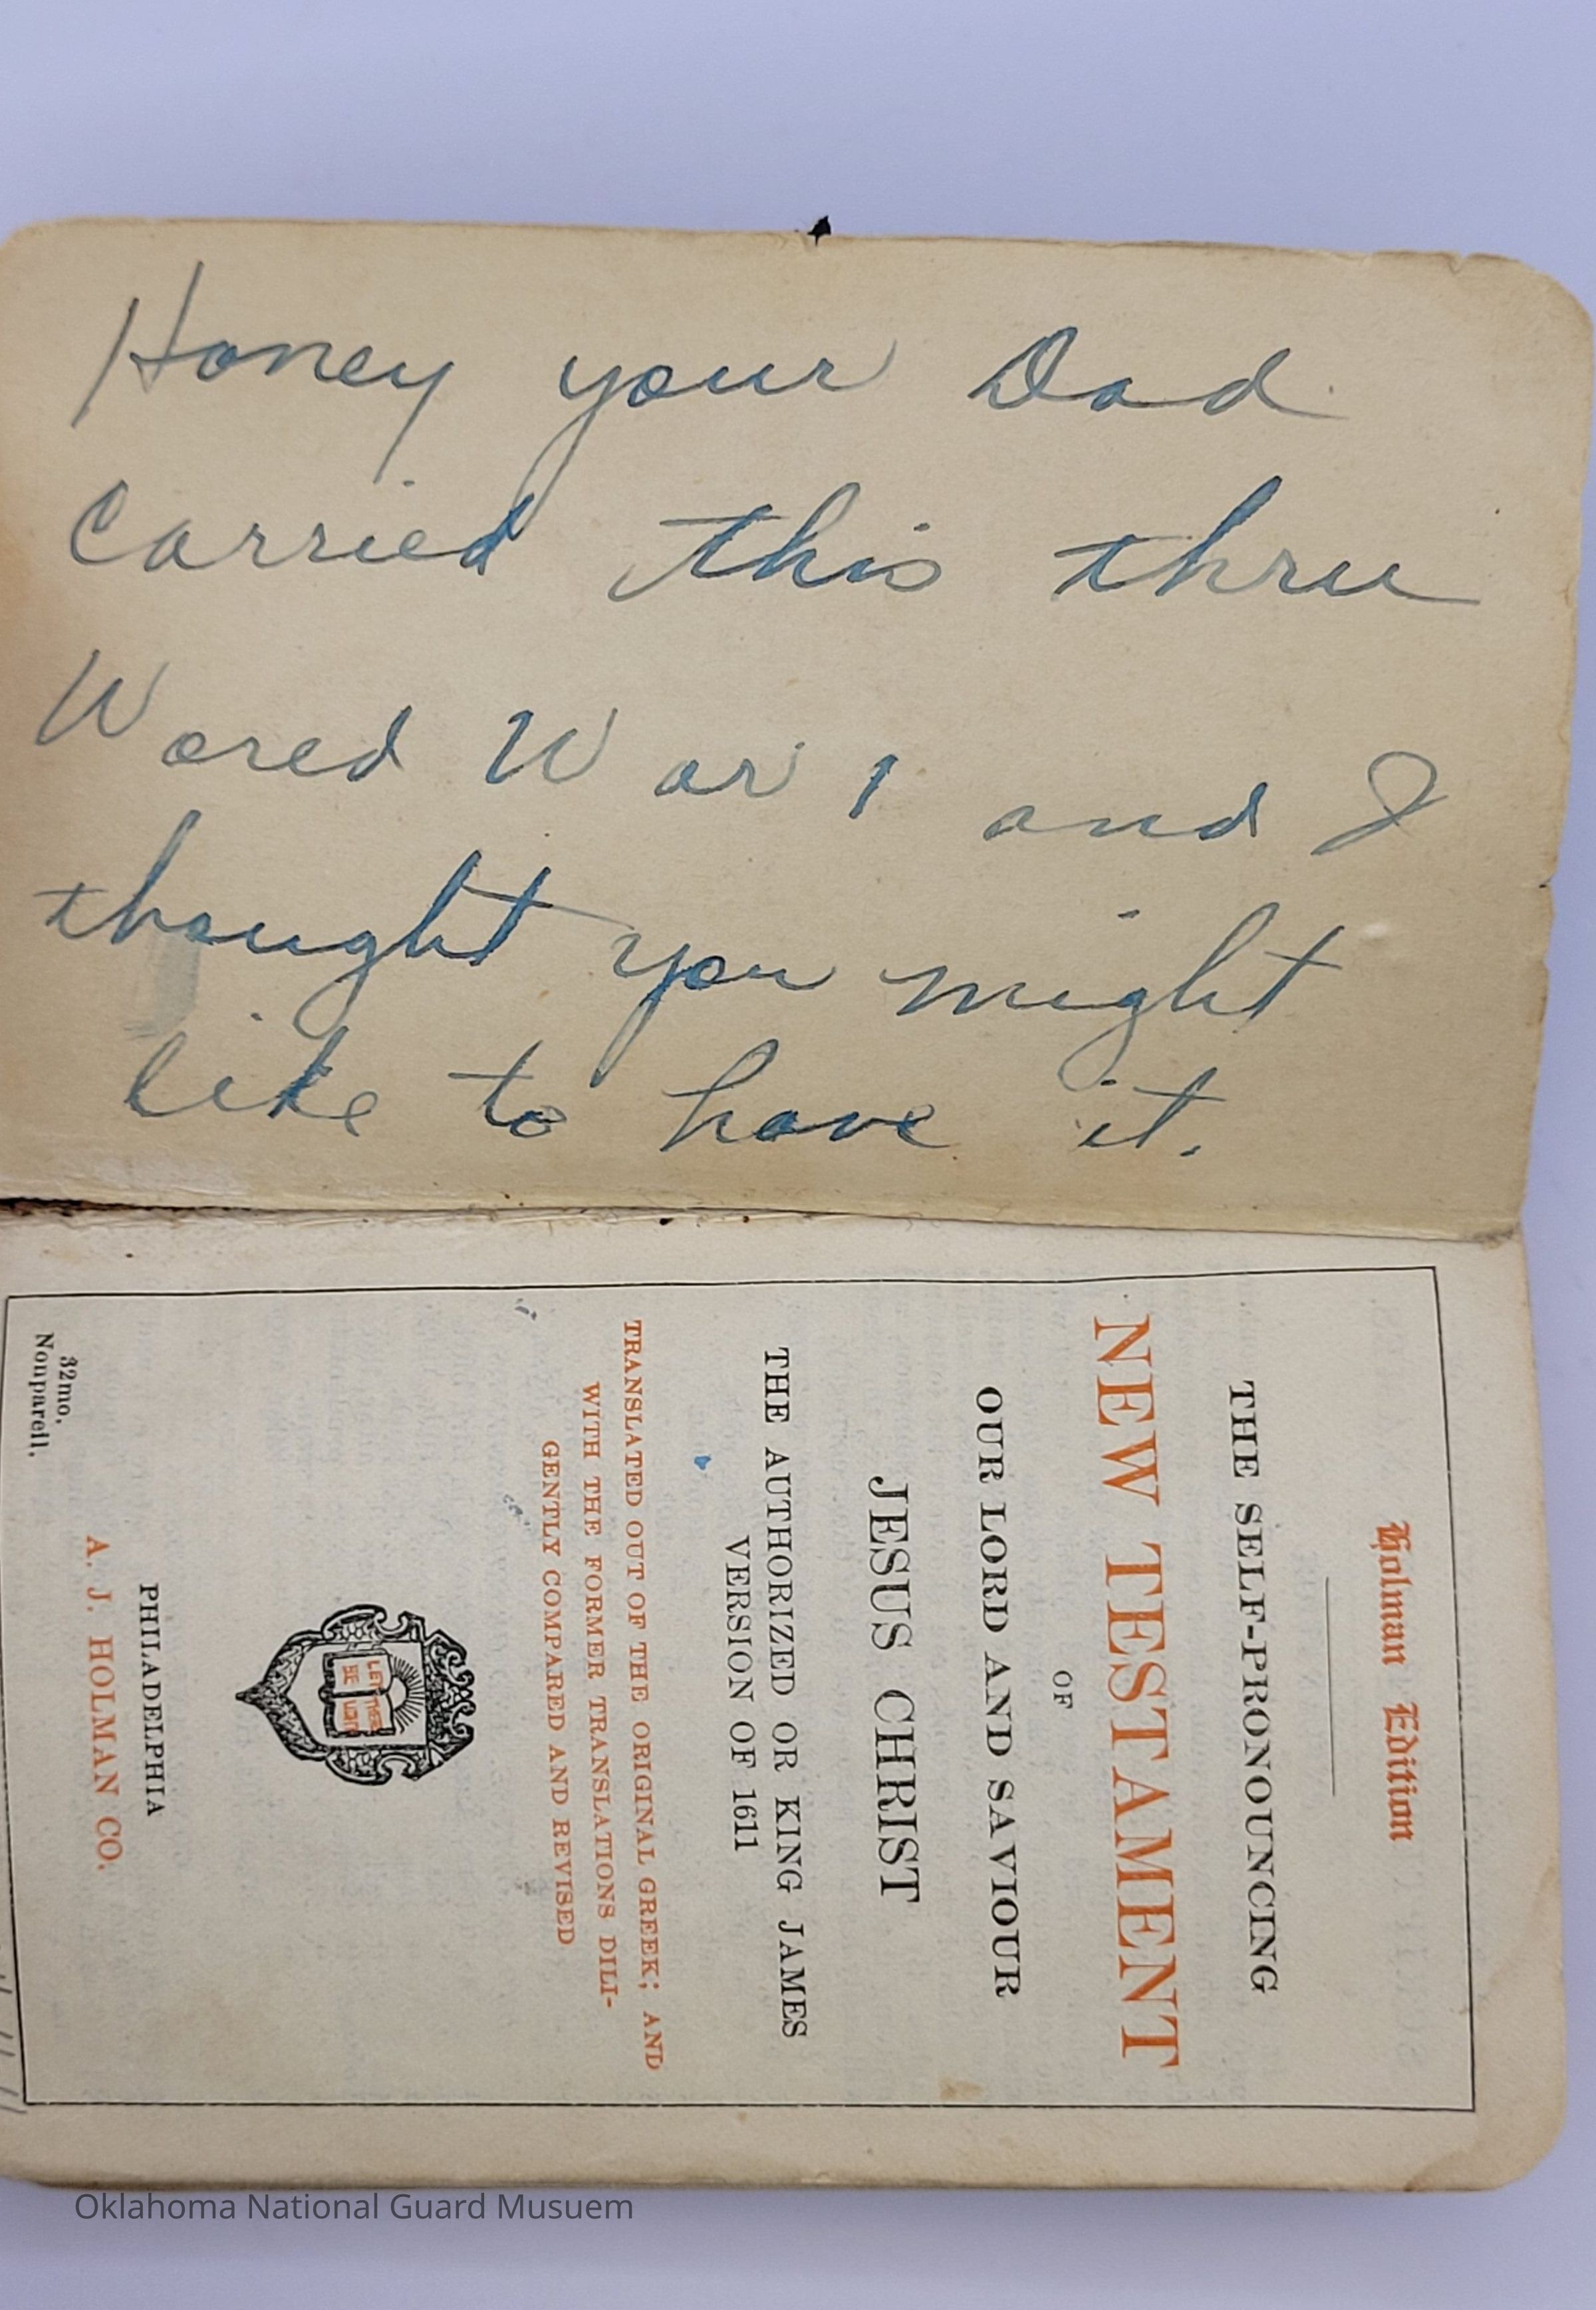 Honey your Dad
carried this thru
Wored War 1 and I
thought you might
like to have it.
Holman Edition
THE SELF-PRONOUNCING
NEW TESTAMENT
OF
OUR LORD AND SAVIOUR
JESUS CHRIST
THE AUTHORIZED OR KING JAMES
VERSION OF 1611
TRANSLATED OUT OF THE ORIGINAL GREEK; AND
WITH THE FORMER TRANSLATIONS DILI-
GENTLY COMPARED AND REVISED
LET THERE
BE LIGHT
PHILADELPHIA
A. J. HOLMAN CO.
32mo.
Nonpareil.
Oklahoma National Guard Musuem